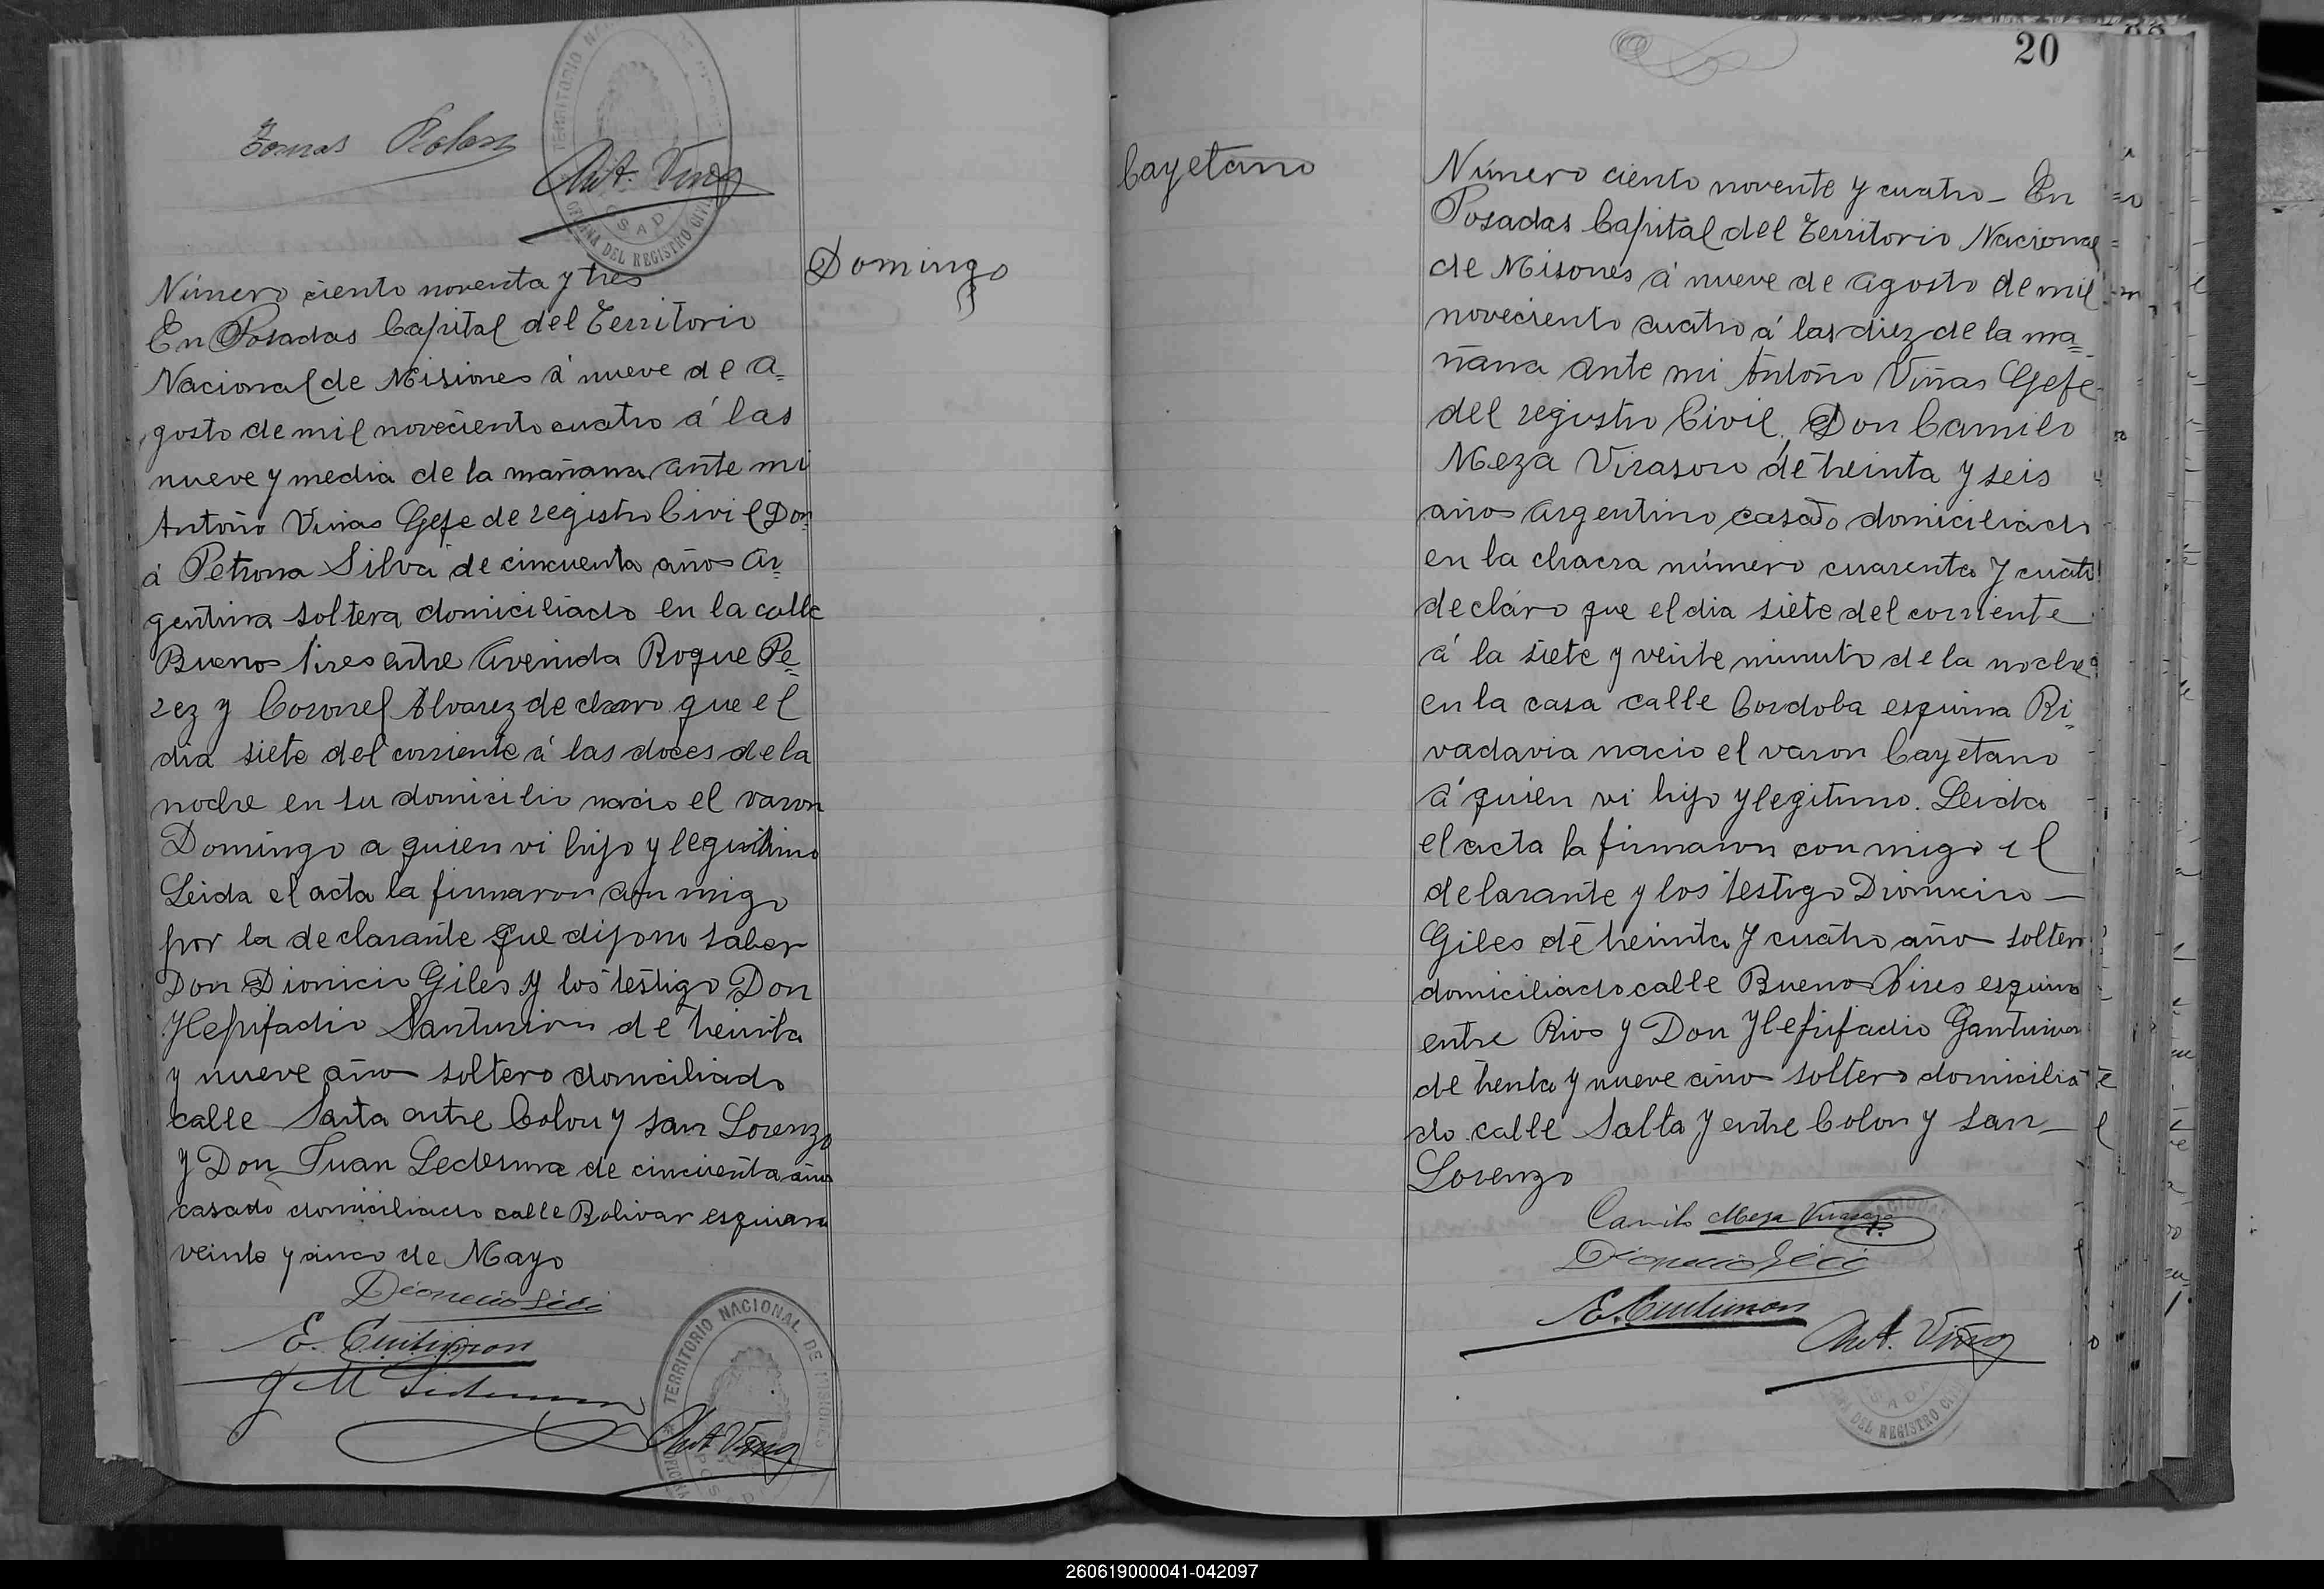 Tomas Rolon
Ant. Viñas
TERRITORIO NA
OFICINA DEL REGISTRO CIVIL
Domingo
Número ciento noventa y tres
En Posadas Capital del Territorio
Nacional de Misiones á nueve de a=
gosto de mil noveciento cuatro á las
nueve y media de la mañana ante mi
Antoño Viñas Gefe de registro Civil Don=
á Petrona Silva de cincuenta años Ar=
gentina soltera domiciliado en la calle
Buenos Aires entre Avenida Roque Pe=
rez y Coronel Alvarez declaro que el
dia siete del corriente á las doces de la
noche en su domicilio nacio el varon
Domingo a quien vi hijo y leguitimo
Leida el acta la firmaron con migo
por la declarante que dijo no saber
Don Dionicio Giles y los testigo Don
Hepifadio Santurion de treinta
y nueve año soltero domiciliado
calle Santa entre Colon y San Lorenzo
y Don Juan Ledesma de cincuenta año
casado domiciliado calle Bolivar esquina
veinte y cinco de Mayo
E.
J M Ledesma
TERRITORIO NACIONAL DE MISIONES
Ant. Viñas
20
Cayetano
Número ciento novente y cuatro - En
Posadas Capital del Territorio Nacional
de Misones á nueve de agosto de mil
noveciento cuatro á las diez de la ma=
ñana ante mi Antoño Viñas Gefe
del registro Civil. Don Camilo
Meza Virasoro de treinta y seis
años argentino casado domiciliado
en la chacra número cuarenta y cuatro
declaro que el dia siete del corriente
á la siete y veinte minuto de la noche
en la casa calle Cordoba esquina Ri=
vadavia nacio el varon Cayetano
á quien vi hijo ylegitimo. Leida
el acta la firmaron con migo el
delarante y los testigo Dionicio —
Giles de treinta y cuatro año soltero
domiciliado calle Bueno Aires esquina
entre Rios y Don Ylefifadio Ganturion
de trenta y nueve año soltero domicilia
do calle Salta y entre Colon y San —
Lorenzo
Camilo Meza Virasoro
E. Centurion
Ant. Viñas
DEL REGISTRO CIVIL
260619000041-042097